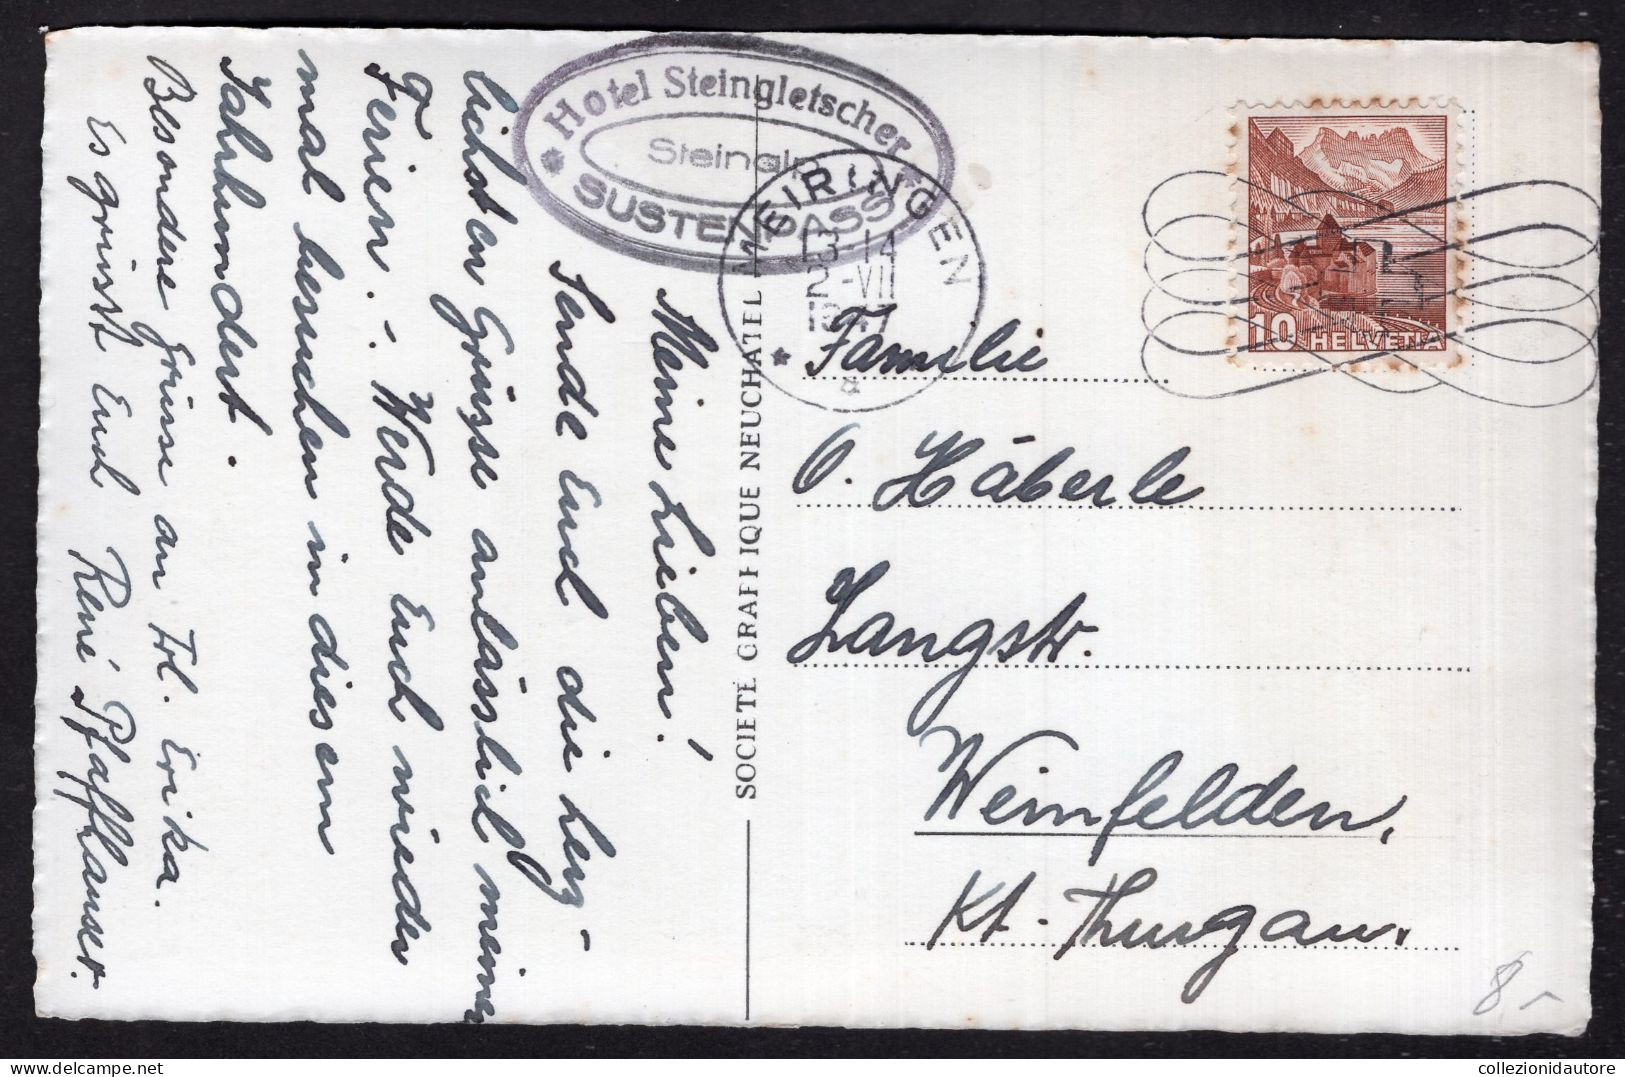 Hotel Steingletscher
Steinalp
* SUSTENPASS
MEIRINGEN
13-14
2-VII
1947
10 HELVETIA
Meine Lieben!
Sende Euch die herz-
lichsten Grüsse anlässlich meiner
Ferien. - Werde Euch wieder
mal besuchen in diesem
Jahrhundert.
Besondere Grüsse an Frl. Erika.
Es grüsst Euch René Pfaffhauser.
SOCIÉTÉ GRAPHIQUE NEUCHATEL
Familie
O. Häberle
Langstr.
Weinfelden,
Kt. Thurgau.
8.-
collezionidautore